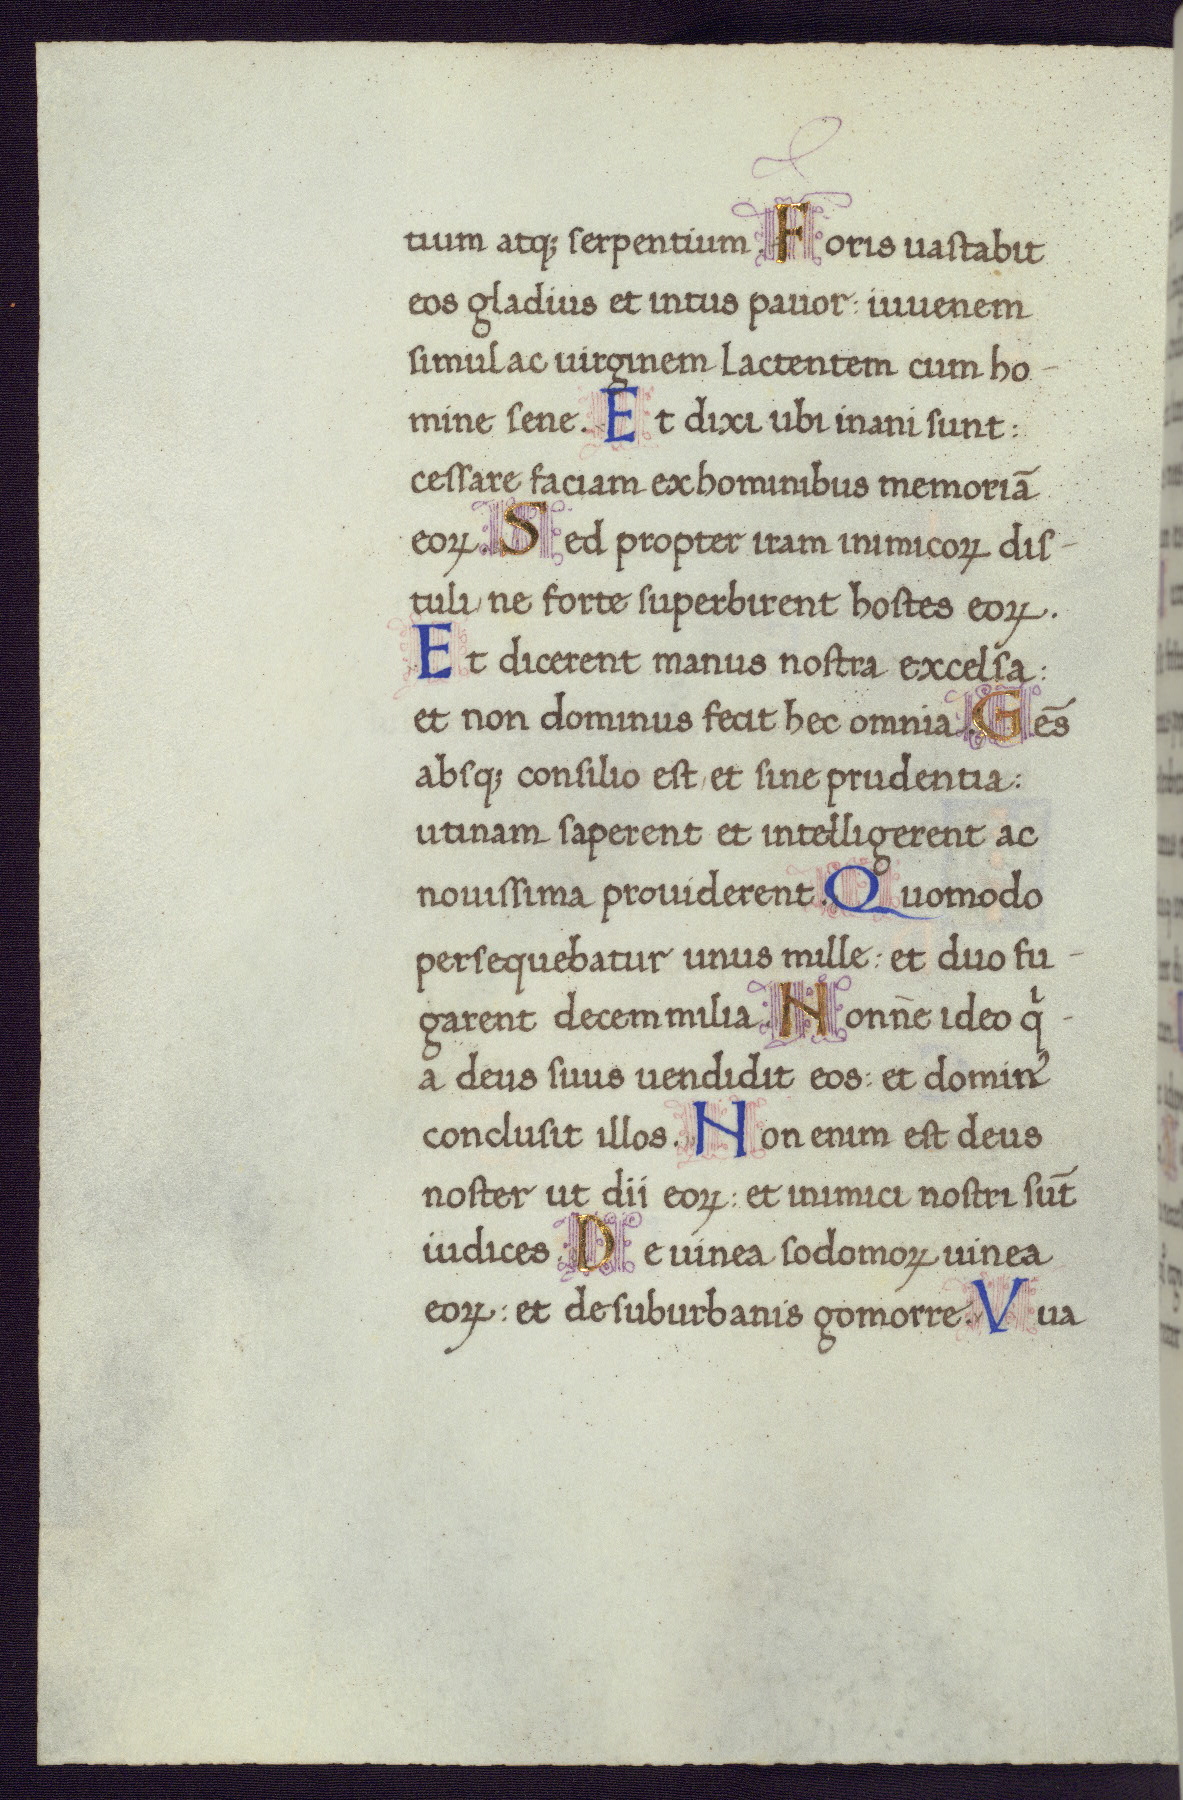 tium atqꝫ serpentium. Foris uastabit
eos gladius et intus pauor: iuuenem
simul ac uirginem lactentem cum ho-
mine sene. Et dixi ubi inani sunt:
cessare faciam ex hominibus memoriã
eoꝝ. Sed propter iram inimicoꝝ dis-
tuli/ ne forte superbirent hostes eoꝝ.
Et dicerent manus nostra excelsa:
et non dominus fecit hec omnia. Gēs
absqꝫ consilio est/ et sine prudentia:
utinam saperent et intelligerent ac
nouissima prouiderent. Quomodo
persequebatur unus mille: et duo fu-
garent decem milia. Nonn̄e ideo qⁱ-
a deus suus uendidit eos: et dominꝰ
conclusit illos. Non enim est deus
noster ut dii eoꝝ: et inimici nostri sūt
iudices. De uinea sodomoꝝ uinea
eoꝝ: et de suburbanis gomorre. Vua